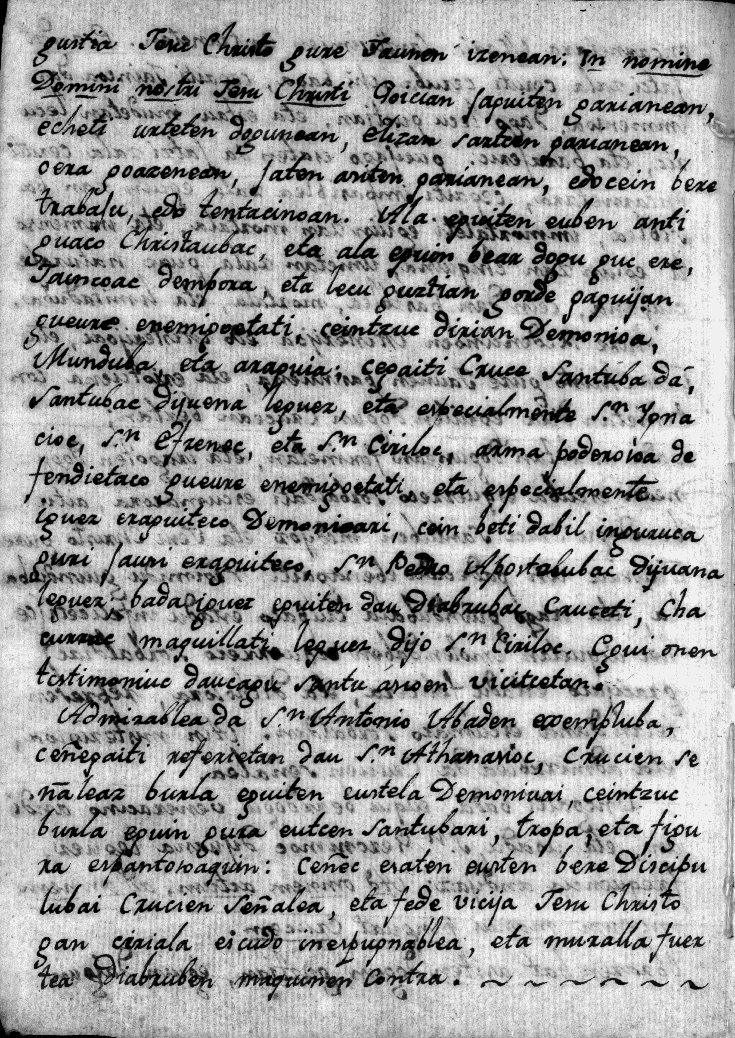 guztia Jesu Christo gure Jaunen izenean. In nomine
Domini nostri Jesu Christi Goician jaguiten garianean,
echeti urteten dogunean, Elizan sartcen garianean,
oera goazenean, jaten asiten garianean, edocein bere
trabaju, edo tentacinoan. Ala eguiten euben anti
guaco Christaubac, eta ala eguin bear dogu guc ere,
Jaincoac dempora, eta lecu guztian gorde gaguijan
gueure enemigoetati ceintzuc dirian Demonioa,
Munduba, eta araguia: cegaiti Cruce Santuba da,
Santubac dijuena leguez, eta especialmente S.n Ygna
cioc, S.n Efrenec, eta S.n Ciriloc, arma poderosoa de
fendietaco gueure enemigoetati, eta especialmente
iguez eraguiteco Demonioari, cein beti dabil inguruca
guri jausi eraguiteco, S.n Pedro Apostolubac dijuana
leguez: bada iguez eguiten dau Diabrubac Cruceti, Cha
currac maquillati leguez dijo S.n Ciriloc. Egui onen
testimoniuc daucagu Santu ascoen vicitcetan.
Admirablea da S.n Antonio Abaden exempluba,
ceñegaiti referietan dau S.n Athanasioc, Crucien se
ñaleaz burla eguiten eustela Demoniuai, ceintzuc
burla eguin gura eutcen Santubari, tropa, eta figu
ra espantosoagun: Ceñec, esaten eusten bere Discipu
lubai Crucien Señalea, eta fede vicija Jesu Christo
gan ciriala escudo inespugnablea, eta muralla fuer
tea Diabruben maquinen contra. ~ ~ ~ ~ ~ ~